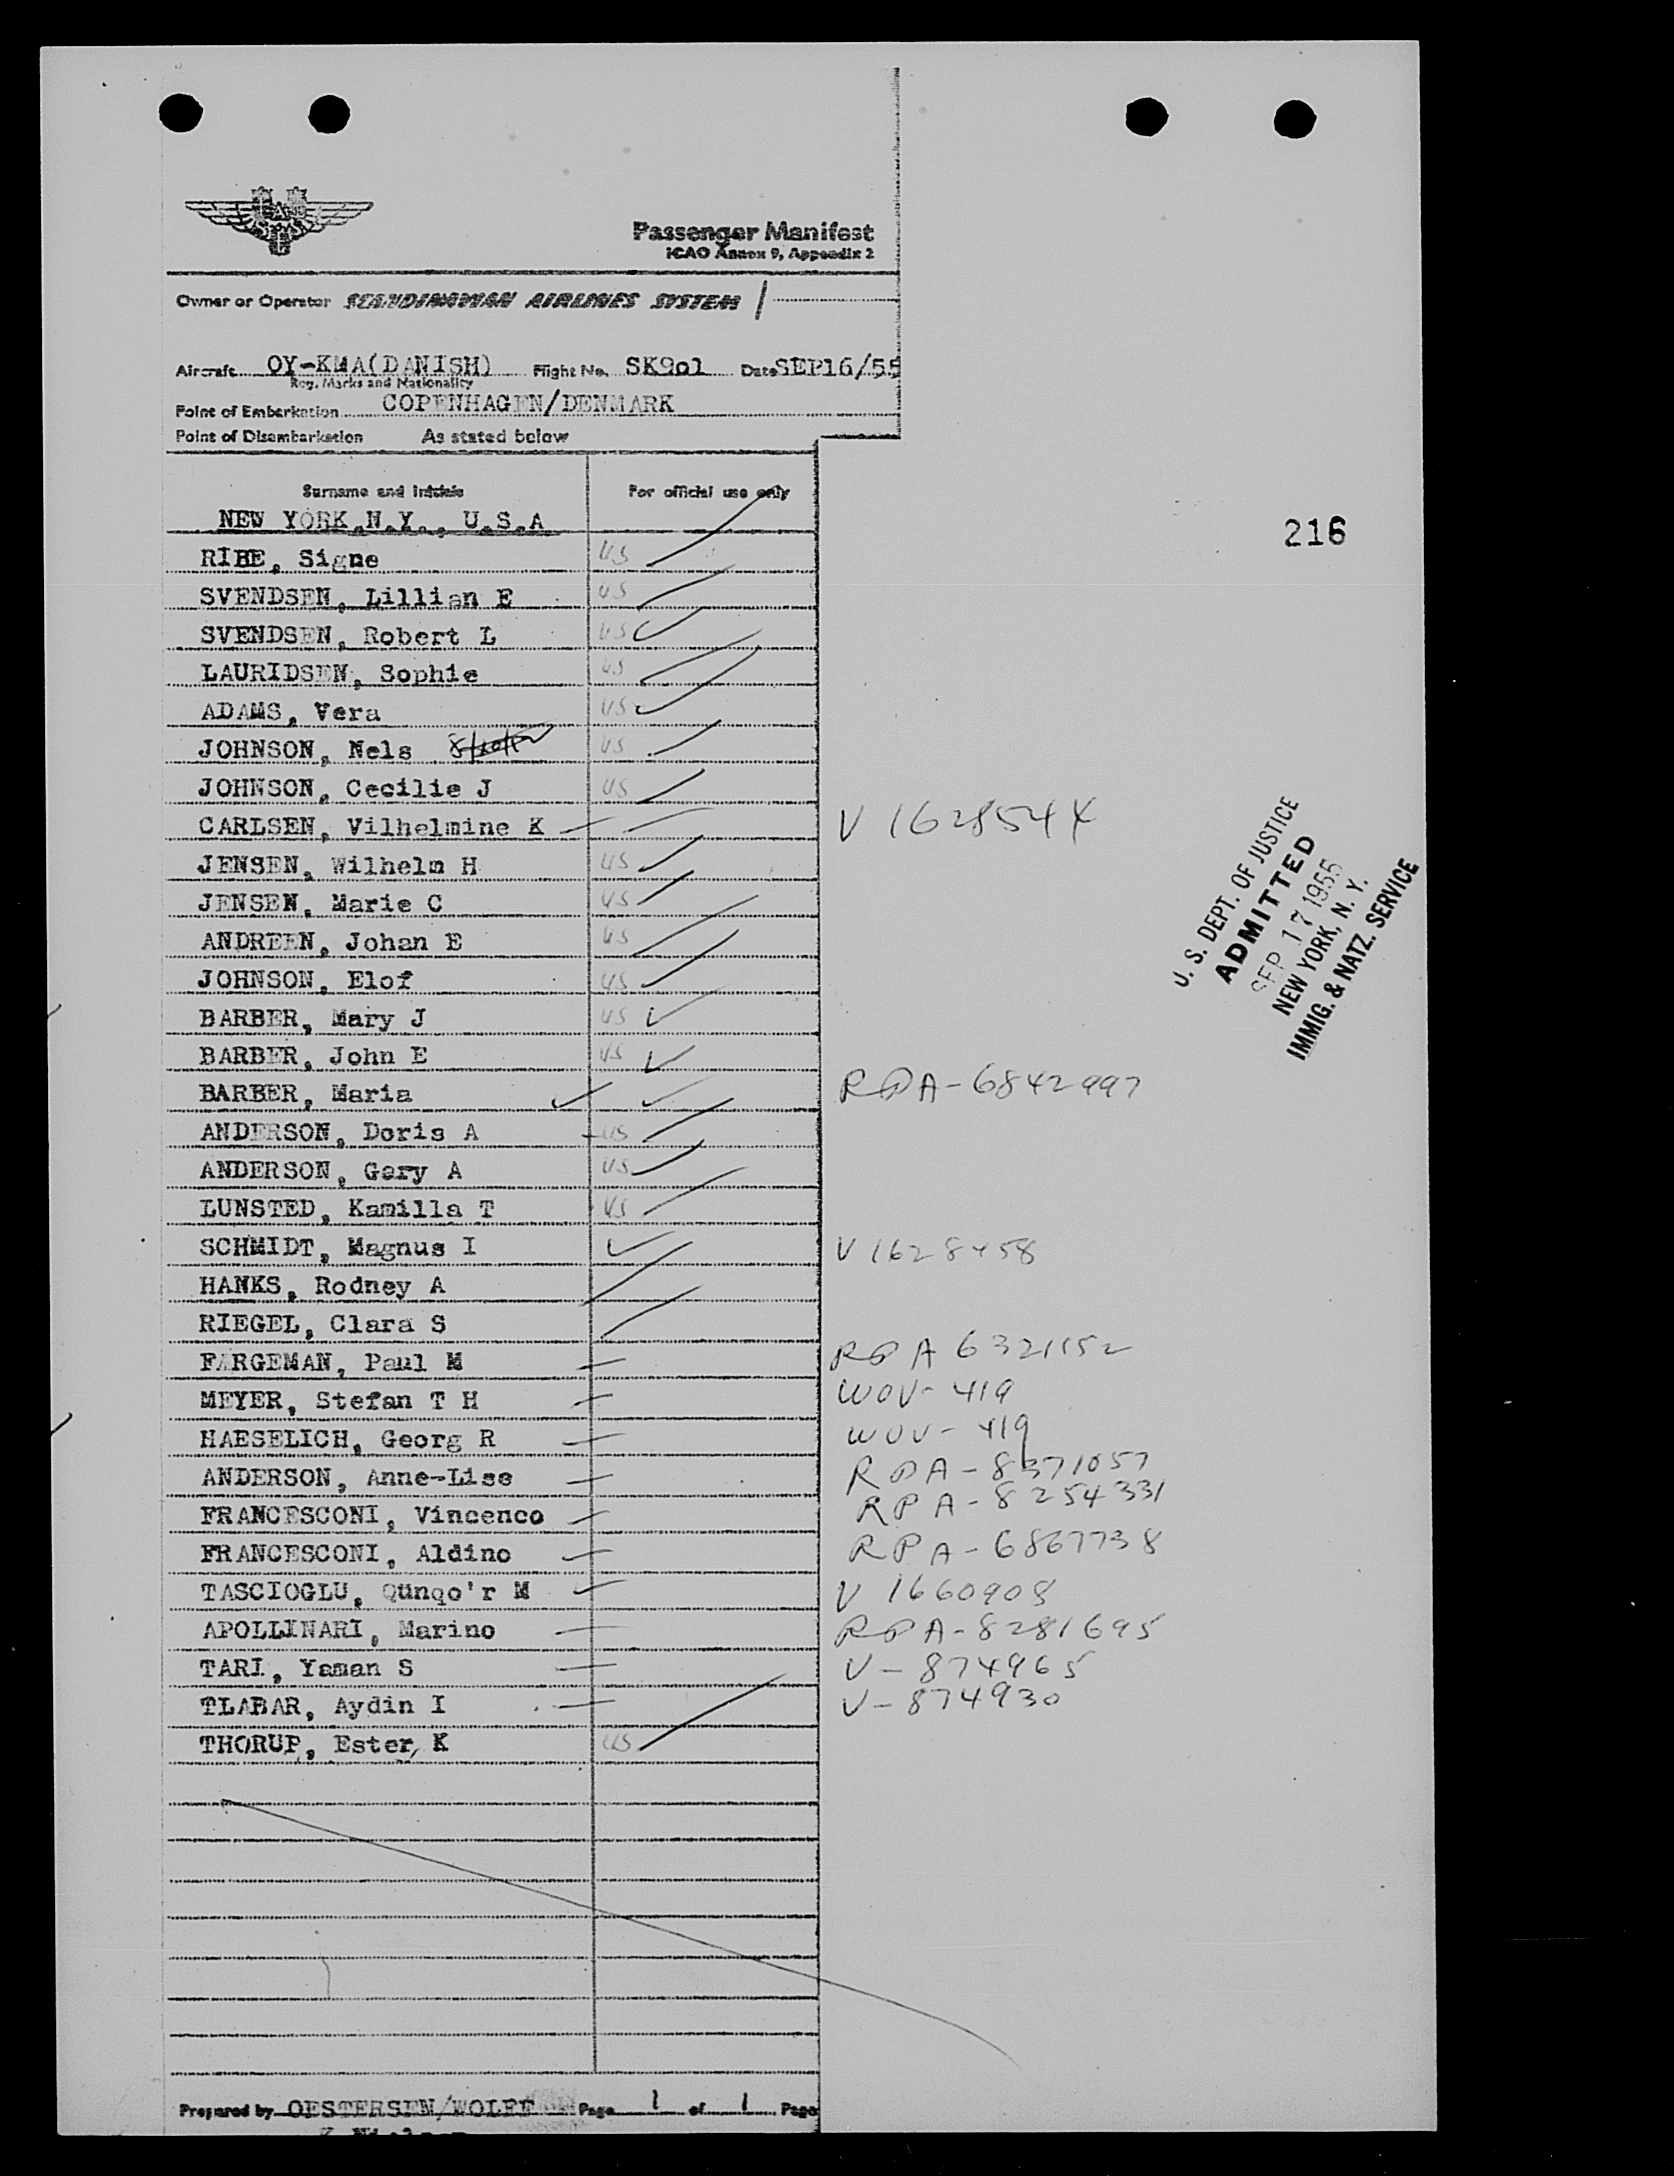 Passenger Manifest
ICAO Annex 9, Appendix 2
Owner or Operator SCANDINAVIAN AIRLINES SYSTEM
Aircraft OY-KMA(DANISH) Flight No. SK9o1 Date SEP16/55
Reg. Marks and Nationality
Point of Embarkation COPENHAGEN/DENMARK
Point of Disembarkation As stated below
Surname and Initials For official use only
NEW YORK,N.Y., U.S.A
216
RIBE, Signe US
SVENDSEN, Lillian E US
SVENDSEN, Robert L US
LAURIDSEN, Sophie US
ADAMS, Vera US
JOHNSON, Nels US
JOHNSON, Cecilie J US
CARLSEN, Vilhelmine K V 1628544
JENSEN, Wilhelm H US
JENSEN, Marie C US
ANDREEN, Johan E US
JOHNSON, Elof US
U. S. DEPT. OF JUSTICE
ADMITTED
SEP 17 1955
NEW YORK, N. Y.
IMMIG. & NATZ. SERVICE
BARBER, Mary J US
BARBER, John E US
BARBER, Maria RPA-6842997
ANDERSON, Doris A US
ANDERSON, Gary A US
LUNSTED, Kamilla T US
SCHMIDT, Magnus I V 1628458
HANKS, Rodney A
RIEGEL, Clara S
FARGEMAN, Paul M RPA 6321152
MEYER, Stefan T H WOV-419
HAESELICH, Georg R WOV-419
ANDERSON, Anne-Lise RPA-8371057
FRANCESCONI, Vincenco RPA-8254331
FRANCESCONI, Aldino RPA-6867738
TASCIOGLU, Qünqo'r M V 1660908
APOLLINARI, Marino RPA-8281695
TARI, Yaman S V-874965
TLABAR, Aydin I V-874930
THORUP, Ester, K US
Prepared by OESTERSEN/WOLFF Page 1 of 1 Pages